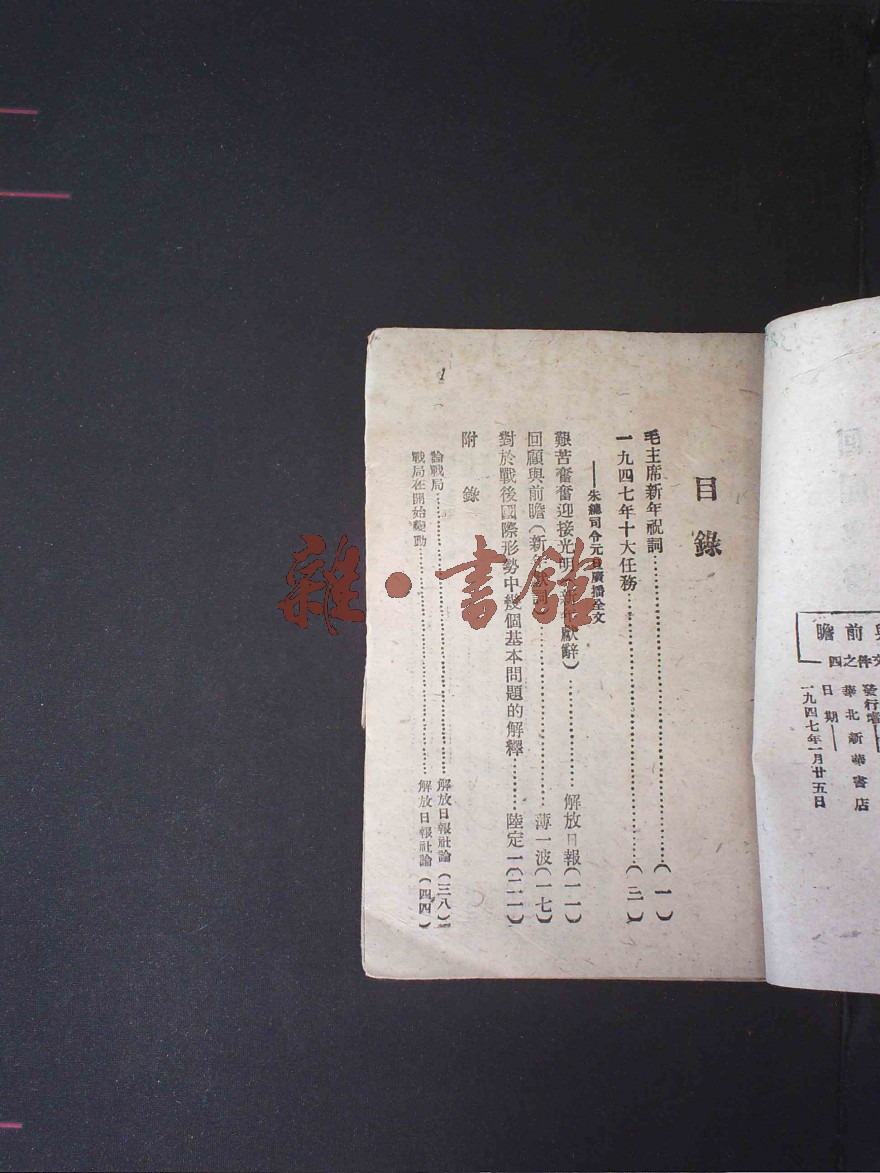 目錄
毛主席新年祝詞……(一)
一九四七年十大任務……(三)
——朱總司令元旦廣播全文
艱苦奮奮迎接光明(新年獻辭)……解放日報(一一)
回顧與前瞻(新年獻詞)……薄一波(一七)
對於戰後國際形勢中幾個基本問題的解釋……陸定一(二一)
附錄
論戰局……解放日報社論(三八)
戰局在開始變動……解放日報社論(四四)
1
與前瞻
文件之四
發行者
華北新華書店
日期
一九四七年一月廿五日
雜·書館